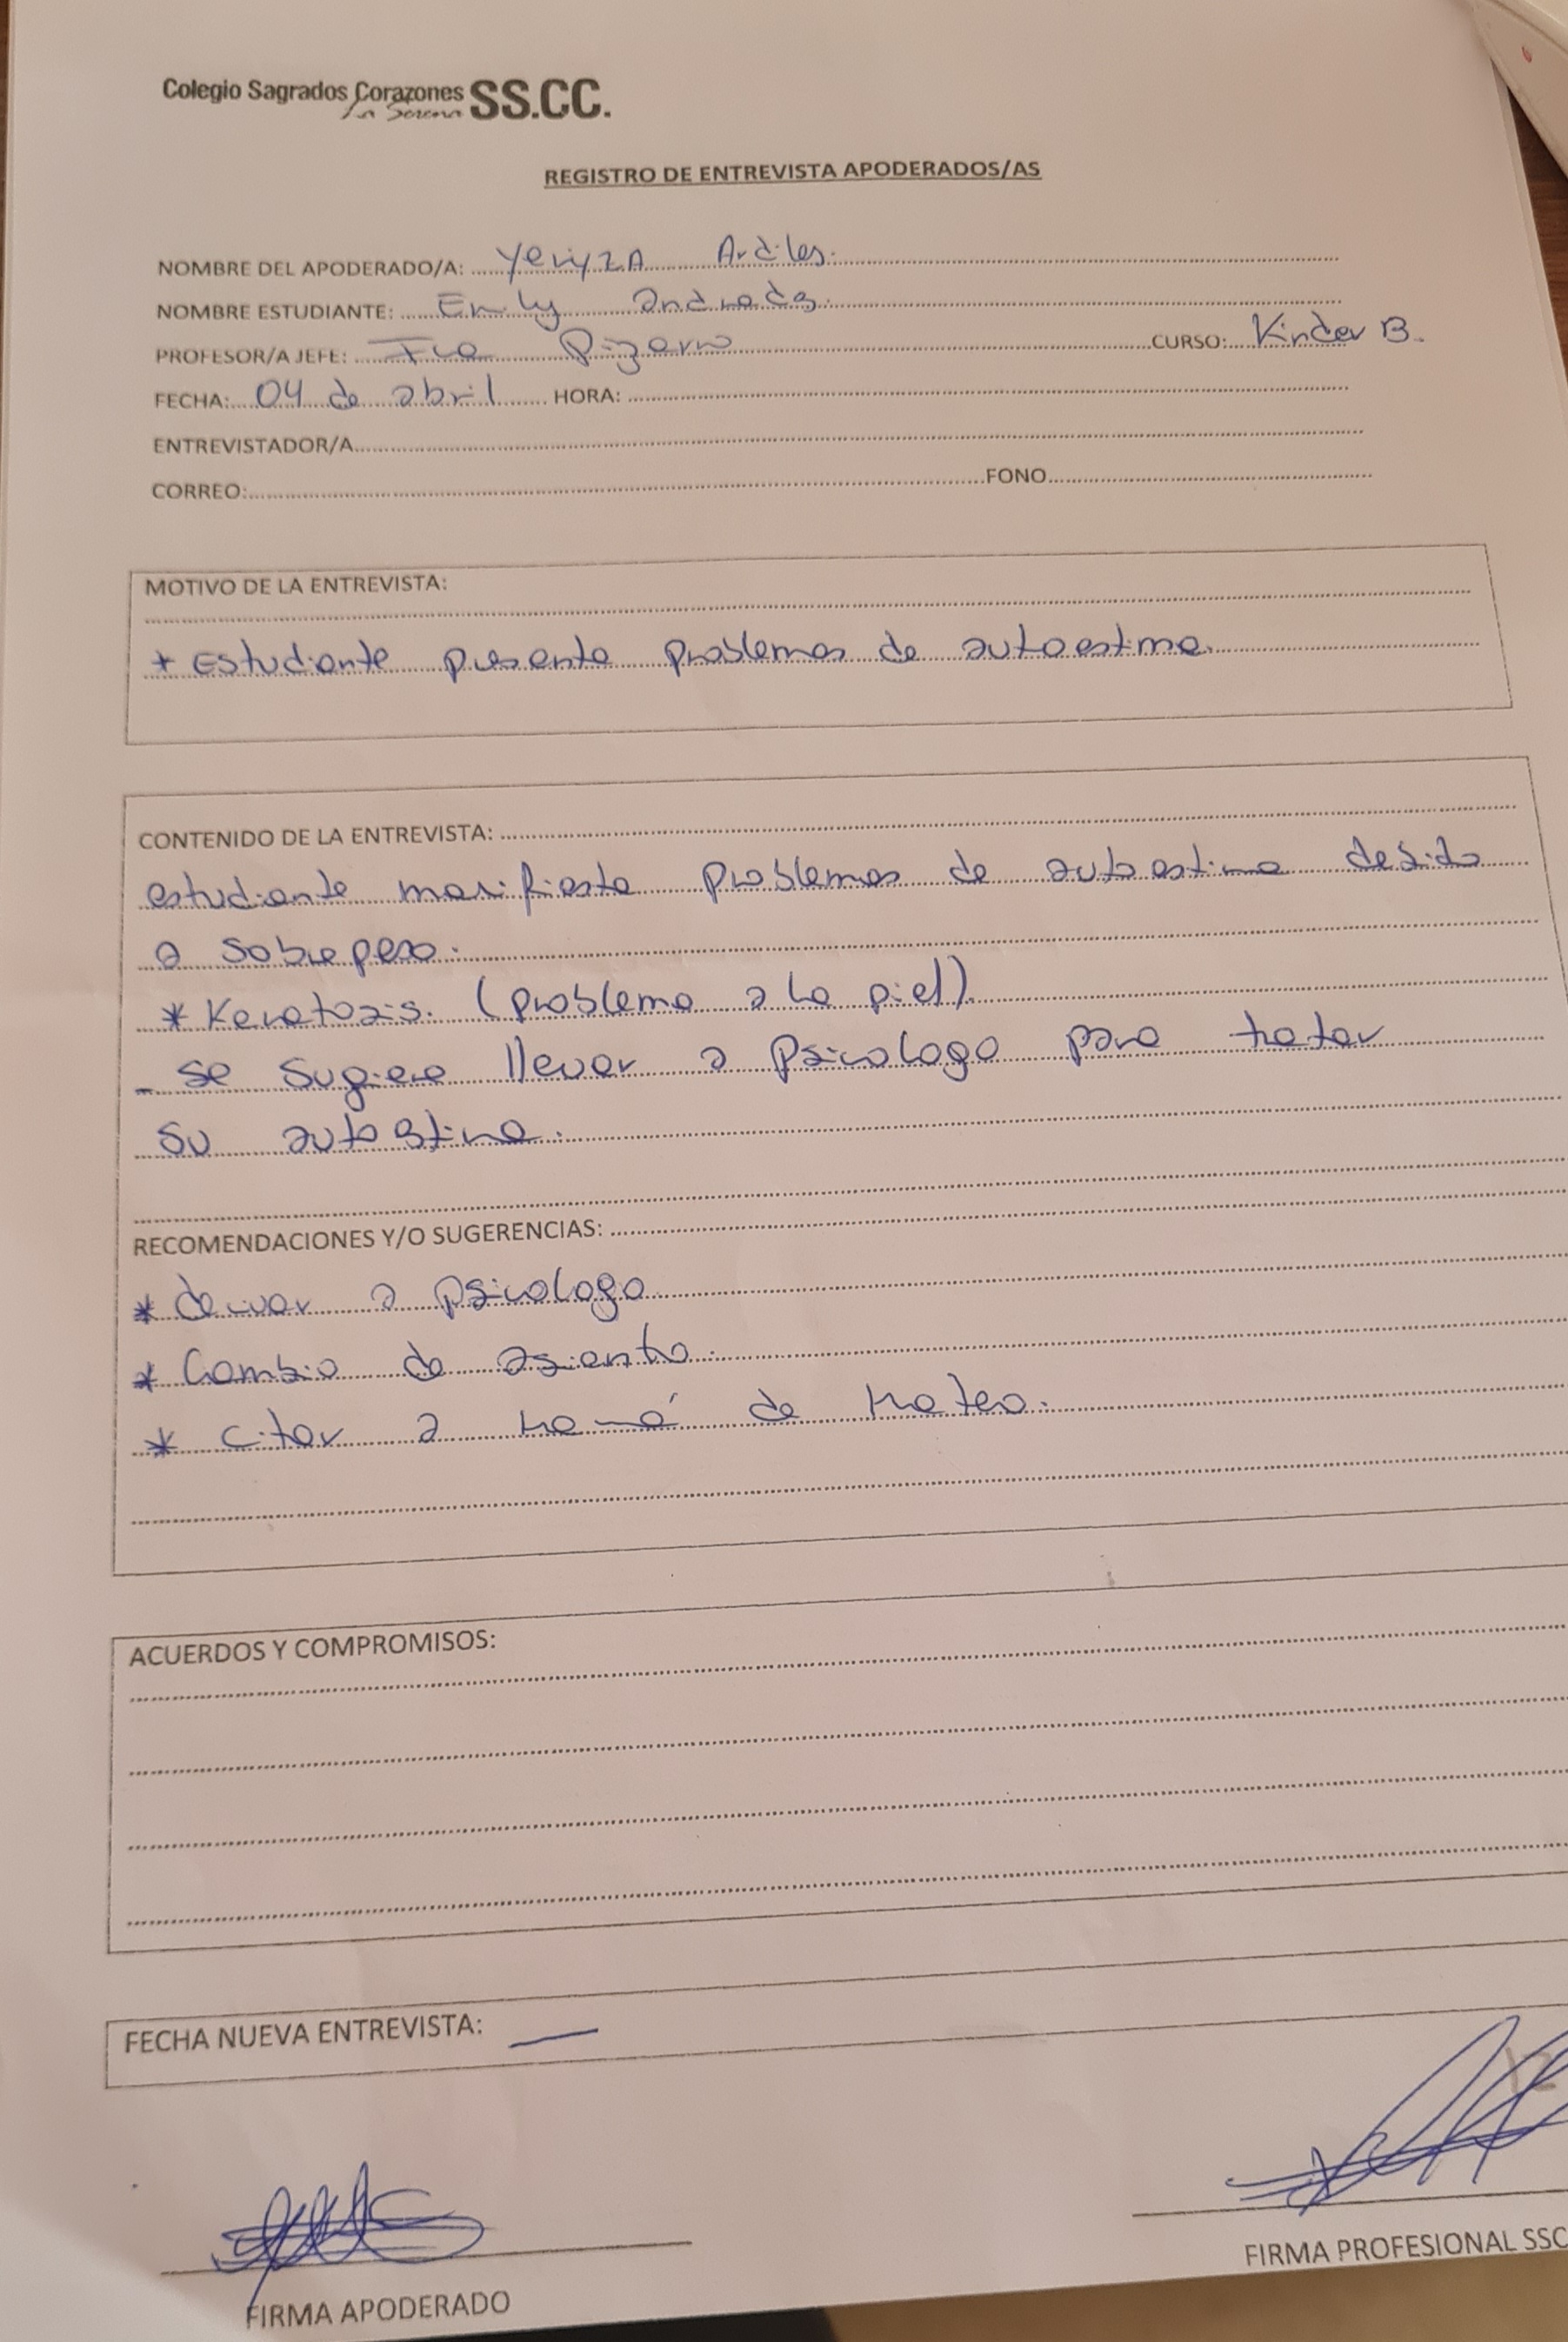 Colegio Sagrados Corazones SS.CC.
La Serena
REGISTRO DE ENTREVISTA APODERADOS/AS
NOMBRE DEL APODERADO/A: Yeriza Ardiles.
NOMBRE ESTUDIANTE: Emily andrada.
PROFESOR/A JEFE: Fca Pizarro CURSO: Kinder B.
FECHA: 04 de abril HORA:
ENTREVISTADOR/A
CORREO: FONO
MOTIVO DE LA ENTREVISTA:
* Estudiante presenta problemas de autoestima.
CONTENIDO DE LA ENTREVISTA:
estudiante manifiesta problemas de autoestima debido
a sobrepeso.
* Keratosis. (problema a la piel).
- se sugiere llevar a psicologo para tratar
su autoestima.
RECOMENDACIONES Y/O SUGERENCIAS:
* derivar a psicologo
* Cambio de asiento.
* citar a mamá de Mateo.
ACUERDOS Y COMPROMISOS:
FECHA NUEVA ENTREVISTA: —
FIRMA APODERADO
FIRMA PROFESIONAL SSC